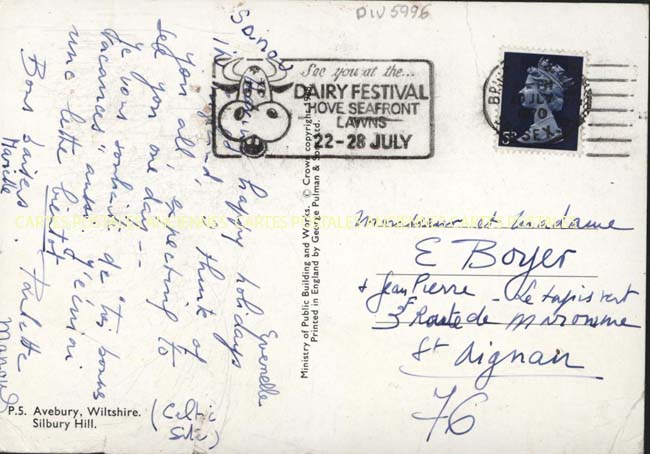 DIV 5996
See you at the...
DAIRY FESTIVAL
HOVE SEAFRONT
LAWNS
22-28 JULY
1970
SSEX
Ministry of Public Building and Works. © Crown copyright
Printed in England by George Pulman & Sons Ltd.
P.S. Avebury, Wiltshire.
Silbury Hill.
(Celtic
Site)
happy holidays
think of
you all, expecting to
see you one day --
Je vous souhaite de "très bonnes
vacances" aussi
une lettre bientôt
Bons baisers. Paulette
CARTES POSTALES ANCIENNES CARTES POSTALES
Monsieur et Madame
E Boyer
+ Jean Pierre - Le tapis vert
3 Route de Maromme
St Aignan
76